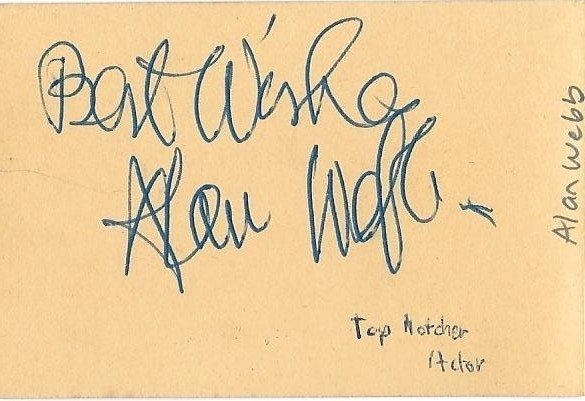 Best Wishes
Alan Webb.
Top Notcher
Actor
Alan Webb